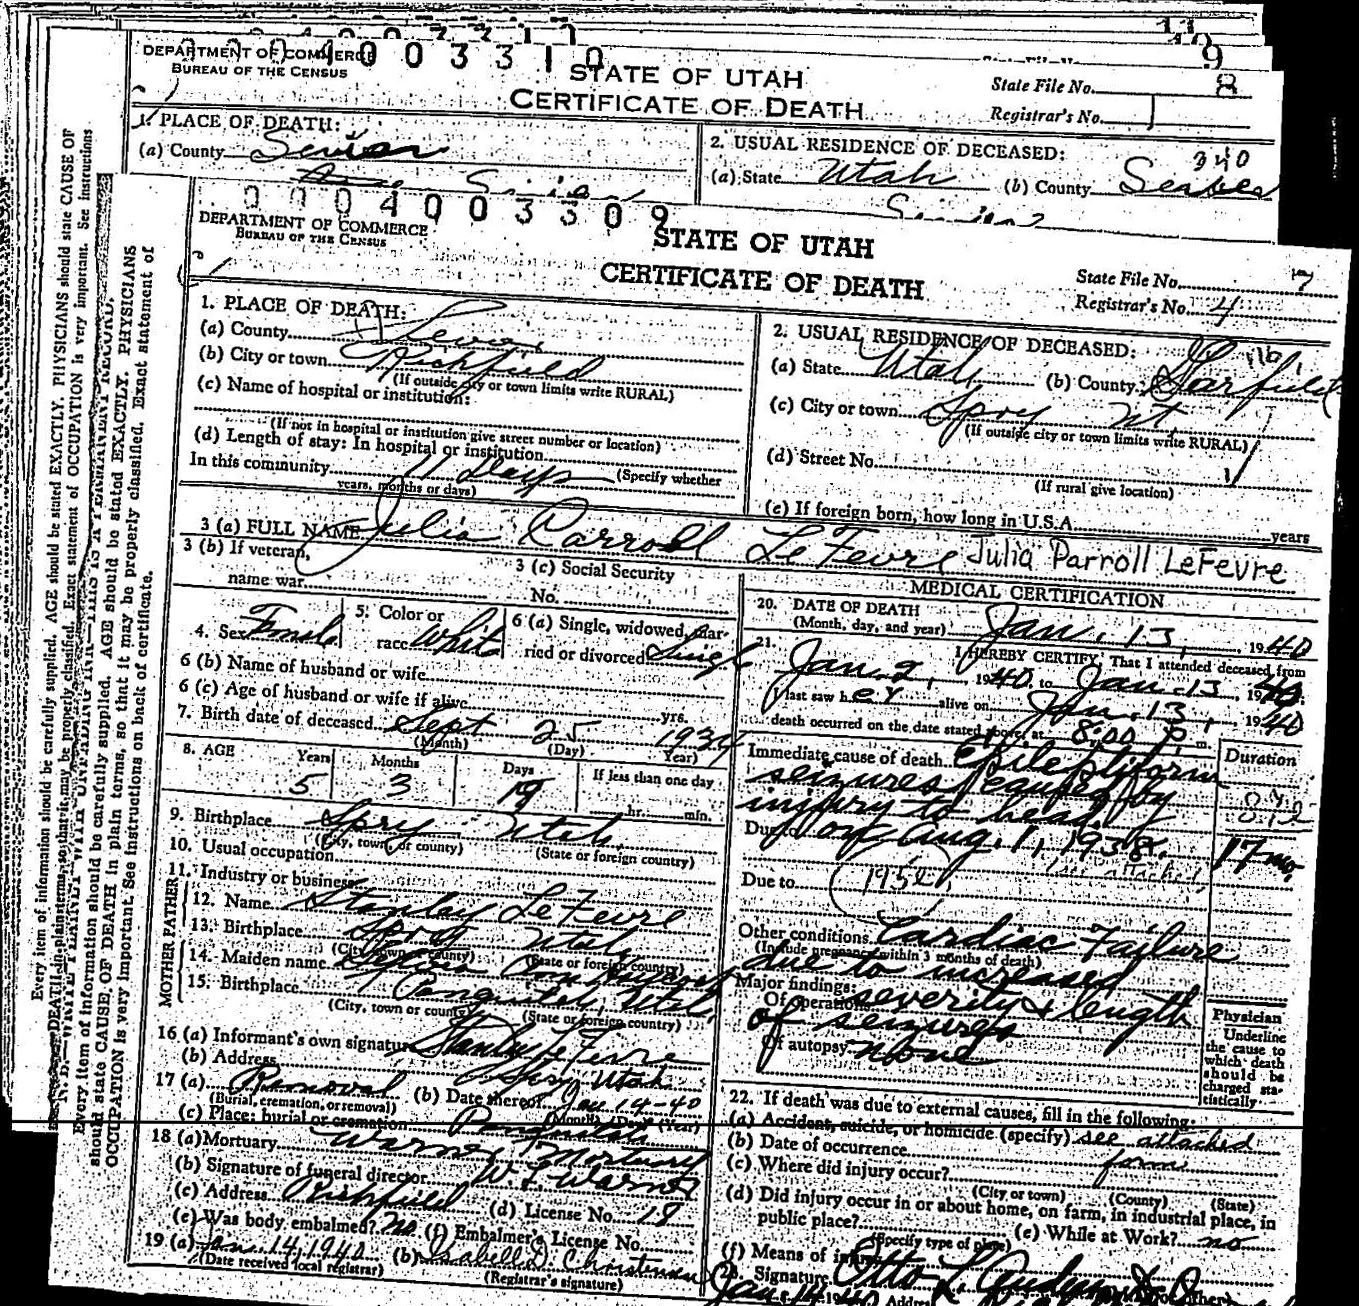 DEPARTMENT OF COMMERCE
BUREAU OF THE CENSUS
0 0 3 3 1 0
STATE OF UTAH
CERTIFICATE OF DEATH
State File No. 8
Registrar's No. 1
1. PLACE OF DEATH:
(a) County Sevier
2. USUAL RESIDENCE OF DECEASED:
(a) State Utah (b) County
340
Every item of information should be carefully supplied. AGE should be stated EXACTLY. PHYSICIANS should state CAUSE OF
DEATH in plain terms, so that it may be properly classified. Exact statement of OCCUPATION is very important. See instructions
Every item of information should be carefully supplied. AGE should be stated EXACTLY. PHYSICIANS
should state CAUSE OF DEATH in plain terms, so that it may be properly classified. Exact statement of
OCCUPATION is very important. See instructions on back of certificate.
0 0 0 4 0 0 3 3 0 9
DEPARTMENT OF COMMERCE
BUREAU OF THE CENSUS
STATE OF UTAH
CERTIFICATE OF DEATH
State File No. 7
Registrar's No. 4
1. PLACE OF DEATH:
(a) County Sevier
(b) City or town Richfield
(If outside city or town limits write RURAL)
(c) Name of hospital or institution:
(If not in hospital or institution give street number or location)
(d) Length of stay: In hospital or institution
In this community 11 Days (Specify whether
years, months or days)
2. USUAL RESIDENCE OF DECEASED:
(a) State Utah (b) County Garfield
(c) City or town Spry Ut.
(If outside city or town limits write RURAL)
(d) Street No.
(If rural give location)
(e) If foreign born, how long in U.S.A. years
3 (a) FULL NAME Julia Carroll LeFevre Julia Parroll LeFevre
3 (b) If veteran,
name war
3 (c) Social Security
No.
4. Sex Female 5. Color or
race White 6 (a) Single, widowed, mar-
ried or divorced Single
6 (b) Name of husband or wife
6 (c) Age of husband or wife if alive yrs.
7. Birth date of deceased Sept 25 1934
(Month) (Day) (Year)
8. AGE Years Months Days If less than one day
5 3 19 hr. min.
9. Birthplace Spry Utah
(City, town, or county) (State or foreign country)
10. Usual occupation
11. Industry or business
FATHER
12. Name Stanley LeFevre
13. Birthplace Spry Utah
(City, town, or county) (State or foreign country)
MOTHER
14. Maiden name
15. Birthplace Panguitch, Utah
(City, town or county) (State or foreign country)
16 (a) Informant's own signature Stanley LeFevre
(b) Address Spry Utah
17 (a) Removal (b) Date thereof Jan 14-40
(Burial, cremation, or removal) (Month) (Day) (Year)
(c) Place: burial or cremation Panguitch
18 (a) Mortuary Warner Mortuary
(b) Signature of funeral director W. L. Warner
(c) Address Richfield (d) License No. 18
(e) Was body embalmed? No (f) Embalmer's License No.
19 (a) Jan. 14, 1940 (b) Isabell D. Christensen
(Date received local registrar) (Registrar's signature)
MEDICAL CERTIFICATION
20. DATE OF DEATH
(Month, day, and year) Jan. 13, 1940
21. I HEREBY CERTIFY, That I attended deceased from
Jan. 2, 1940, to Jan. 13, 1940.
I last saw her alive on Jan. 13, 1940
death occurred on the date stated above, at 8:00 P. m.
Immediate cause of death Epileptiform
seizures caused by
injury to head
Due to on Aug. 1, 1938.
Duration
17 mo.
(see attached)
Due to (195e)
Other conditions Cardiac Failure
(Include pregnancy within 3 months of death)
due to increased
Major findings:
Of operations severity & length
of seizures
Of autopsy none
Physician
Underline
the cause to
which death
should be
charged sta-
tistically.
22. If death was due to external causes, fill in the following:
(a) Accident, suicide, or homicide (specify) see attached
(b) Date of occurrence form
(c) Where did injury occur?
(City or town) (County) (State)
(d) Did injury occur in or about home, on farm, in industrial place, in
public place?
(Specify type of place) (e) While at Work? no
(f) Means of injury
23. Signature Otto L.
Jan 14 1940 Address